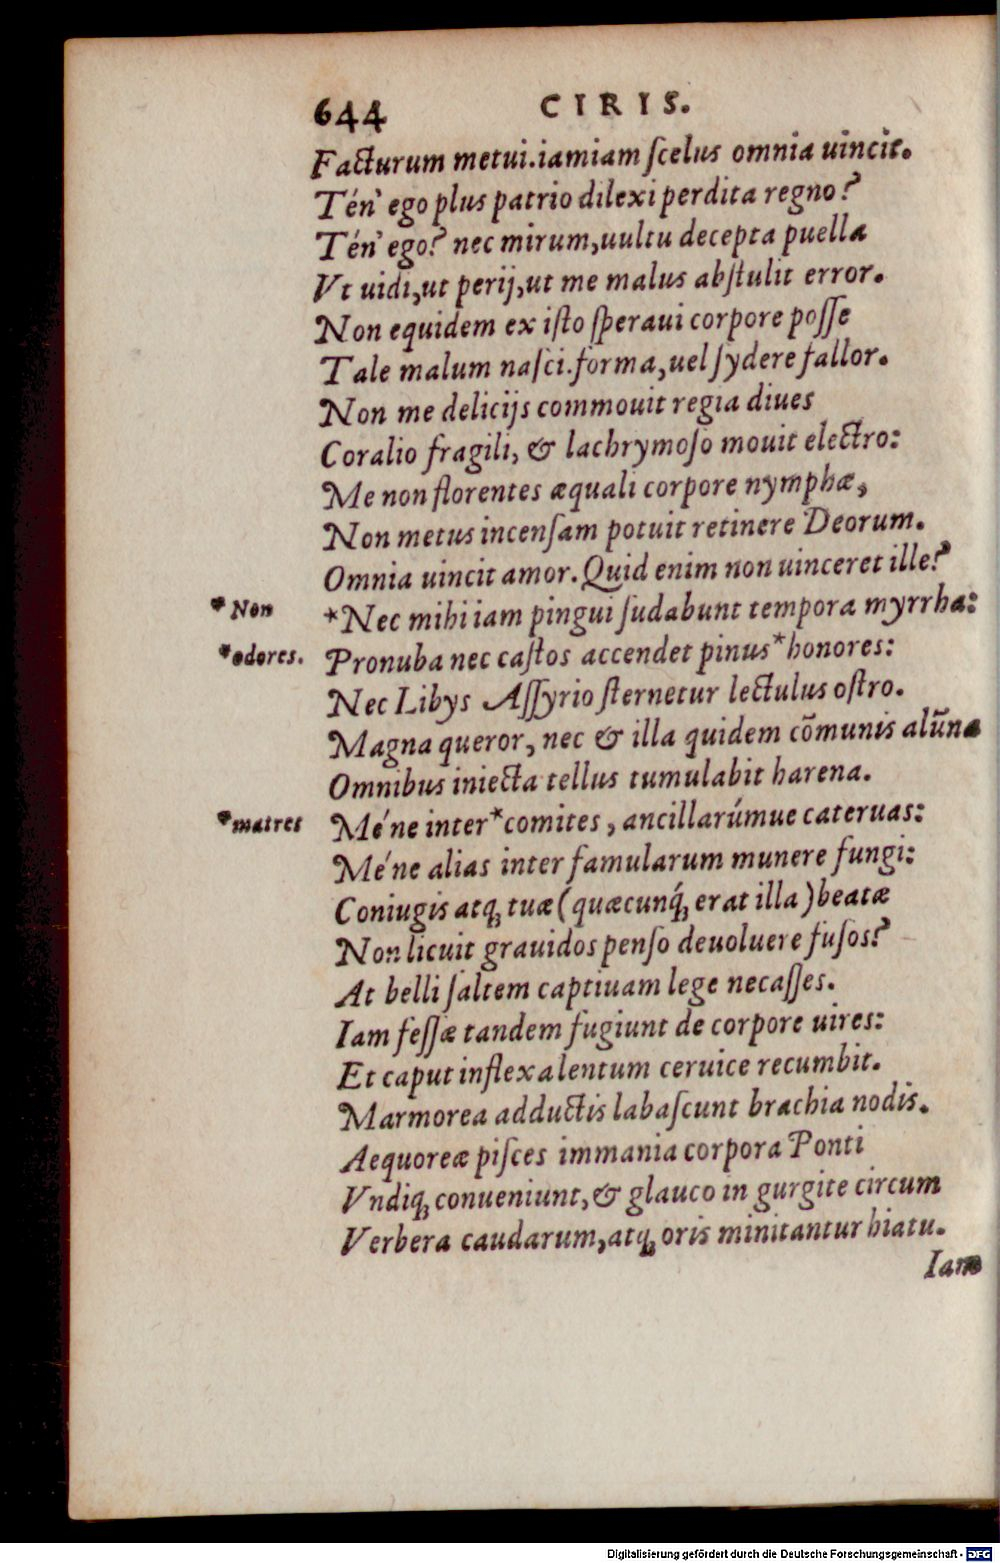 644 CIRIS.
Facturum metui.iamiam ſcelus omnia uincit.
Tén' ego plus patrio dilexi perdita regno?
Tén' ego? nec mirum,uultu decepta puella
Vt uidi,ut perij,ut me malus abſtulit error.
Non equidem ex iſto ſperaui corpore poſſe
Tale malum naſci.forma,uel ſydere fallor.
Non me delicijs commouit regia diues
Coralio fragili, & lachrymoſo mouit electro:
Me non florentes æquali corpore nymphæ,
Non metus incenſam potuit retinere Deorum.
Omnia uincit amor. Quid enim non uinceret ille?
* Non *Nec mihi iam pingui ſudabunt tempora myrrha:
*odores. Pronuba nec caſtos accendet pinus*honores:
Nec Libys Aſſyrio ſternetur lectulus oſtro.
Magna queror, nec & illa quidem cõmunis alũna
Omnibus iniecta tellus tumulabit harena.
*matres Mé́ne inter*comites, ancillarúmue cateruas:
Méne alias inter famularum munere fungi:
Coniugis atq; tuæ (quæcunq́; erat illa) beatæ
Non licuit grauidos penſo deuoluere fuſos?
At belli ſaltem captiuam lege necaſſes.
Iam feſſæ tandem fugiunt de corpore uires:
Et caput inflexa lentum ceruice recumbit.
Marmorea adductis labaſcunt brachia nodis.
Aequoreæ piſces immania corpora Ponti
Vndiq; conueniunt, & glauco in gurgite circum
Verbera caudarum,atq; oris minitantur hiatu.
Iam
Digitalisierung gefördert durch die Deutsche Forschungsgemeinschaft - DFG